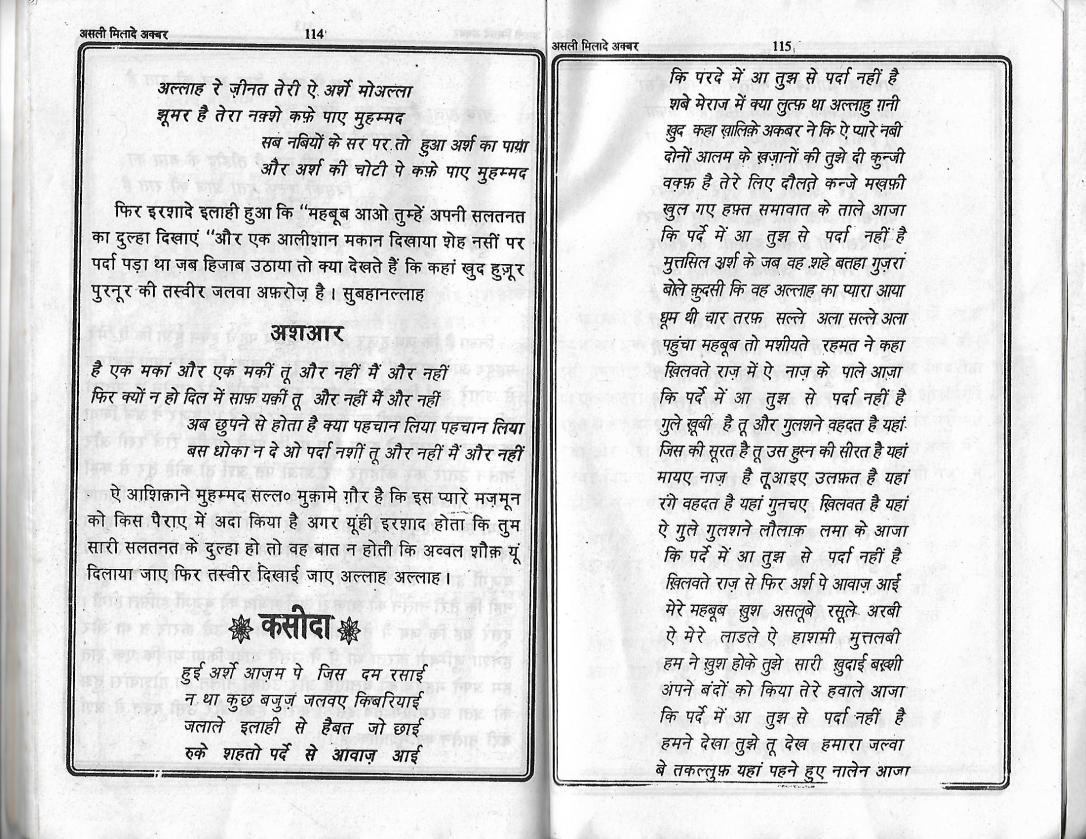 असली मिलादे अक्बर 114
अल्लाह रे ज़ीनत तेरी ऐ अर्शे मोअल्ला
झूमर है तेरा नक़्शे कफ़े पाए मुहम्मद
सब नबियों के सर पर तो हुआ अर्श का पाया
और अर्श की चोटी पे कफ़े पाए मुहम्मद
फिर इरशादे इलाही हुआ कि “महबूब आओ तुम्हें अपनी सलतनत
का दुल्हा दिखाएं “और एक आलीशान मकान दिखाया शेह नसीं पर
पर्दा पड़ा था जब हिजाब उठाया तो क्या देखते हैं कि कहां खुद हुज़ूर
पुरनूर की तस्वीर जलवा अफ़रोज़ है। सुबहानल्लाह
अशआर
है एक मकां और एक मकीं तू और नहीं मैं और नहीं
फिर क्यों न हो दिल में साफ़ यक़ीं तू और नहीं मैं और नहीं
अब छुपने से होता है क्या पहचान लिया पहचान लिया
बस धोका न दे ओ पर्दा नशीं तू और नहीं मैं और नहीं
ऐ आशिक़ाने मुहम्मद सल्ल० मुक़ामे ग़ौर है कि इस प्यारे मज़मून
को किस पैराए में अदा किया है अगर यूंही इरशाद होता कि तुम
सारी सलतनत के दुल्हा हो तो वह बात न होती कि अव्वल शौक़ यूं
दिलाया जाए फिर तस्वीर दिखाई जाए अल्लाह अल्लाह।
कसीदा
हुई अर्शे आज़म पे जिस दम रसाई
न था कुछ बजुज़ जलवए किबरियाई
जलाले इलाही से हैबत जो छाई
रुके शहतो पर्दे से आवाज़ आई
असली मिलादे अक्बर 115
कि परदे में आ तुझ से पर्दा नहीं है
शबे मेराज में क्या लुत्फ़ था अल्लाहु ग़नी
ख़ुद कहा ख़ालिक़े अकबर ने कि ऐ प्यारे नबी
दोनों आलम के ख़ज़ानों की तुझे दी कुन्जी
वक्फ़ है तेरे लिए दौलते कन्जे मख़फ़ी
खुल गए हफ़्त समावात के ताले आजा
कि पर्दे में आ तुझ से पर्दा नहीं है
मुत्तसिल अर्श के जब वह शहे बतहा गुज़रां
बोले क़ुदसी कि वह अल्लाह का प्यारा आया
धूम थी चार तरफ़ सल्ले अला सल्ले अला
पहुंचा महबूब तो मशीयते रहमत ने कहा
ख़िलवते राज़ में ऐ नाज़ के पाले आज़ा
कि पर्दे में आ तुझ से पर्दा नहीं है
गुले ख़ूबी है तू और गुलशने वहदत है यहां
जिस की सूरत है तू उस हुस्न की सीरत है यहां
मायए नाज़ है तूआइए उलफ़त है यहां
रंगे वहदत है यहां गुनचए ख़िलवत है यहां
ऐ गुले गुलशने लौलाक लमा के आजा
कि पर्दे में आ तुझ से पर्दा नहीं है
ख़िलवते राज़ से फिर अर्श पे आवाज़ आई
मेरे महबूब ख़ुश असलूबे रसूले अरबी
ऐ मेरे लाडले ऐ हाशमी मुत्तलबी
हम ने ख़ुश होके तुझे सारी ख़ुदाई बख़्शी
अपने बंदों को किया तेरे हवाले आजा
कि पर्दे में आ तुझ से पर्दा नहीं है
हमने देखा तुझे तू देख हमारा जल्वा
बे तकल्लुफ़ यहां पहने हुए नालेन आजा